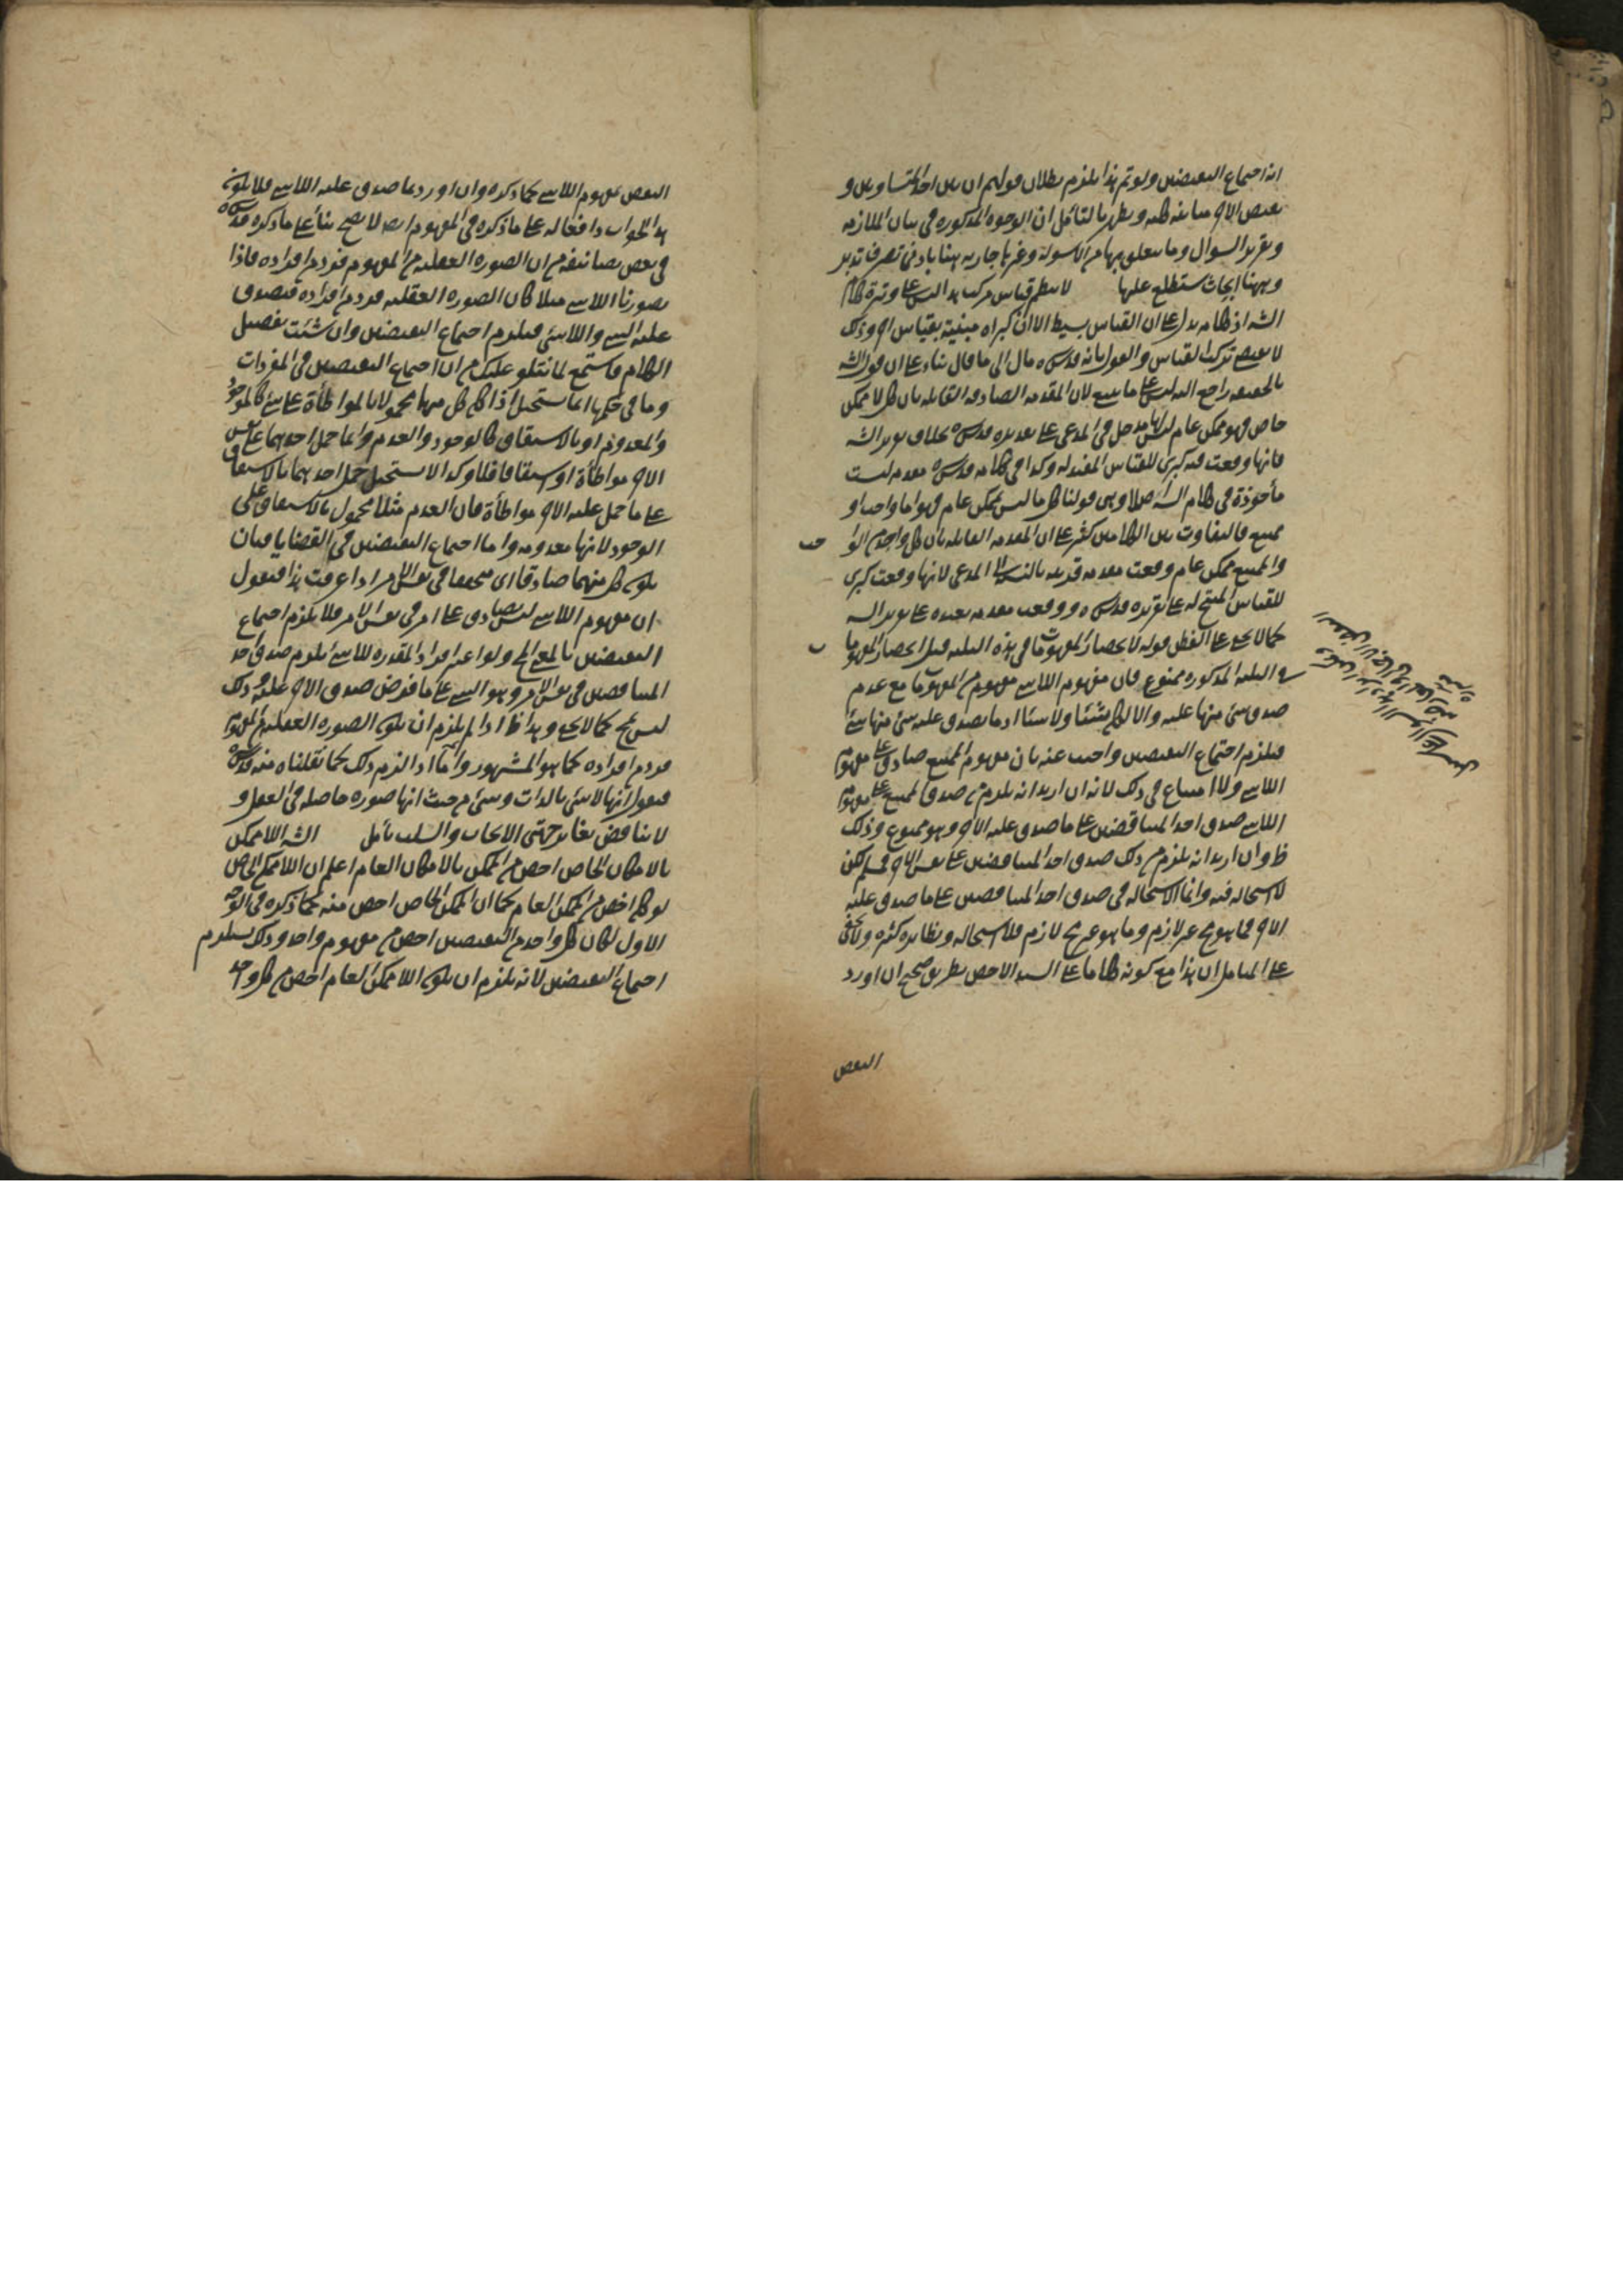 انه اجتماع النقيضين ولو تم هذا يلزم بطلان قولهم ان بين احد المتساويين و
نقيض الاخر مباينة كلية ويظهر بالتأمل ان الوجوه المذكورة في بيان الملازمة
وتقرير السوال وما يتعلق بهما من الاسولة وغيرها جارية ههنا بادنى تصرف تدبر
وههنا ابحاث ستطلع عليها لا ينتظم قياس مركب هذا ليس على وتيرة كلام
الشه اذ كلامه يدل على ان القياس بسيط الا ان كبراه مبنية بقياس اخر وذلك
لا يقتضي تركب القياس والقول بانه قدس سره مال الى ما قال بناء على ان قول الشه
بالحقيقة راجع اليه ليس على ما ينبغي لان المقدمة الصادقة القائلة بان كل لا ممكن
خاص فهو ممكن عام ليس لها مدخل في المدعى على تقديره قدس سره بخلاف تقرير الشه
فانها وقعت فيه كبرى للقياس المفيد له وكذا في كلامه قدس سره مقدمة ليست
مأخوذة في كلام الشه اصلا وهي قولنا كل ما ليس بممكن عام فهو اما واجب او
ممتنع فالتفاوت بين الكلامين كثير على ان المقدمة القائلة بان كل واحد من الوا
جب
والممتنع ممكن عام وقعت مقدمة قريبة بالنسبة الى المدعى لانها وقعت كبرى
للقياس المنتج له على تقريره قدس سره ووقعت مقدمة بعيدة على تقرير الشه
كما لا يخفى على الفطن قوله لانحصار المفهومات في هذه الثلثة قيل انحصار المفهوما
ت
في الثلثة المذكورة ممنوع فان مفهوم اللاشئ مفهوم من المفهومات مع عدم
صدق شئ منها عليه والا لكان شيئا ولاشيئا اذ ما يصدق عليه شئ منها شئ
فيلزم اجتماع النقيضين واجيب عنه بان مفهوم الممتنع صادق على مفهوم
اللاشئ ولا امتناع في ذلك لانه ان اريد انه يلزم من صدق الممتنع على مفهوم
اللاشئ صدق احد المتناقضين على ما صدق عليه الاخر وهو ممنوع وذلك
ظ وان اريد انه يلزم من ذلك صدق احد المتناقضين على نفس الاخر فمسلم لكن
لا استحالة فيه وانما الاستحالة في صدق احد المتناقضين على ما صدق عليه
الاخر فما هو مح غير لازم وما هو غير مح لازم فلا استحالة ونظايره كثيرة ولا يخفى
على المتامل ان هذا مع كونه كلاما على السند الاخص بطريق صحيح ان اورد
النقض
النقض بمفهوم اللاشئ كما ذكره وان اورد بما صدق عليه اللاشئ فلا يكون
هذا الجواب دافعا له على ما ذكره في المفهوم ايضا لا يصح بناء على ما ذكره قدس سره
في بعض تصانيفه من ان الصورة العقلية من المفهوم فرد من افراده فاذا
تصورنا اللاشئ مثلا كان الصورة العقلية فرد من افراده فيصدق
عليه الشئ واللاشئ فيلزم اجتماع النقيضين وان شئت تفصيل
الكلام فاستمع لما نتلو عليك من ان اجتماع النقيضين في المفردات
وما في حكمها انما يستحيل اذا كان كل منهما محمولا بالمواطأة على شئ كالموجود
والمعدوم او بالاشتقاق كالوجود والعدم واما حمل احدهما على نفس
الاخر مواطأة او اشتقاقا فلا وكذا لا يستحيل حمل احدهما بالاشتقاق
على ما حمل عليه الاخر مواطأة فان العدم مثلا محمول بالاشتقاق على
الوجود لانها معدومة واما اجتماع النقيضين في القضايا فبان
يكون كل منهما صادقا اى متحققا في نفس الامر اذا عرفت هذا فنقول
ان مفهوم اللاشئ ليس بصادق على امر في نفس الامر فلا يلزم اجتماع
النقيضين بالمعنى المح ولو اعتبر افراد المقدرة للاشئ يلزم صدق احد
المتناقضين في نفس الامر وهو الشئ على ما فرض صدق الاخر عليه وذلك
ليس بمح كما لا يخفى وهذا ظ اذا لم يلزم ان يكون الصورة العقلية من المفهوم
فرد من افراده كما هو المشهور واما اذا لزم ذلك كما نقلناه منه قدس سره
فنقول انها لاشئ بالذات وشئ من حيث انها صورة حاصلة في العقل و
لا تناقض لتغاير جهتى الايجاب والسلب تأمل الشه اللاممكن
بالامكان الخاص اخص من الممكن بالامكان العام اعلم ان اللاممكن الخاص
لو كان اخص من الممكن العام كما ان الممكن الخاص اخص منه كما ذكره في الوجه
الاول لكان كل واحد من النقيضين اخص من مفهوم واحد وذلك يستلزم
اجتماع النقيضين لانه يلزم ان يكون اللاممكن العام اخص من كل واحد